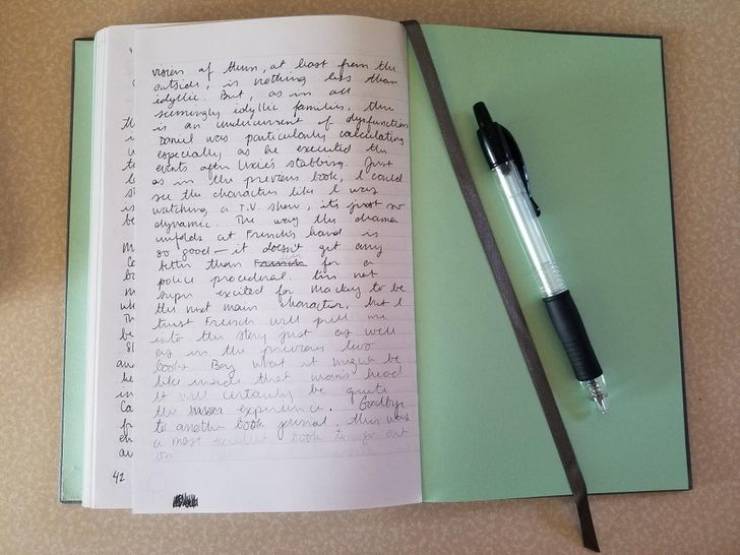 vision of them, at least from the
outside, is nothing less than
idyllic. But, as in all
seemingly idyllic families, there
is an undercurrent of dysfunction
Daniel was particularly calculating
especially as he executed the
events after Lexie's stabbing. Just
as in the previous book, I could
see the characters like I was
watching a T.V. show, its just so
dynamic. The way the drama
unfolds at French's hand is
so good — it doesn't get any
better than for a
police procedural. I'm not
super excited for Mackey to be
the next main character, but I
trust French will pull me
into the story just as well
as in the previous two
books. Boy what it might be
like inside that man's head
It will certainly be quite
the experience. Goodbye
to another book journal. This was
a most excellent book to go out
on
42